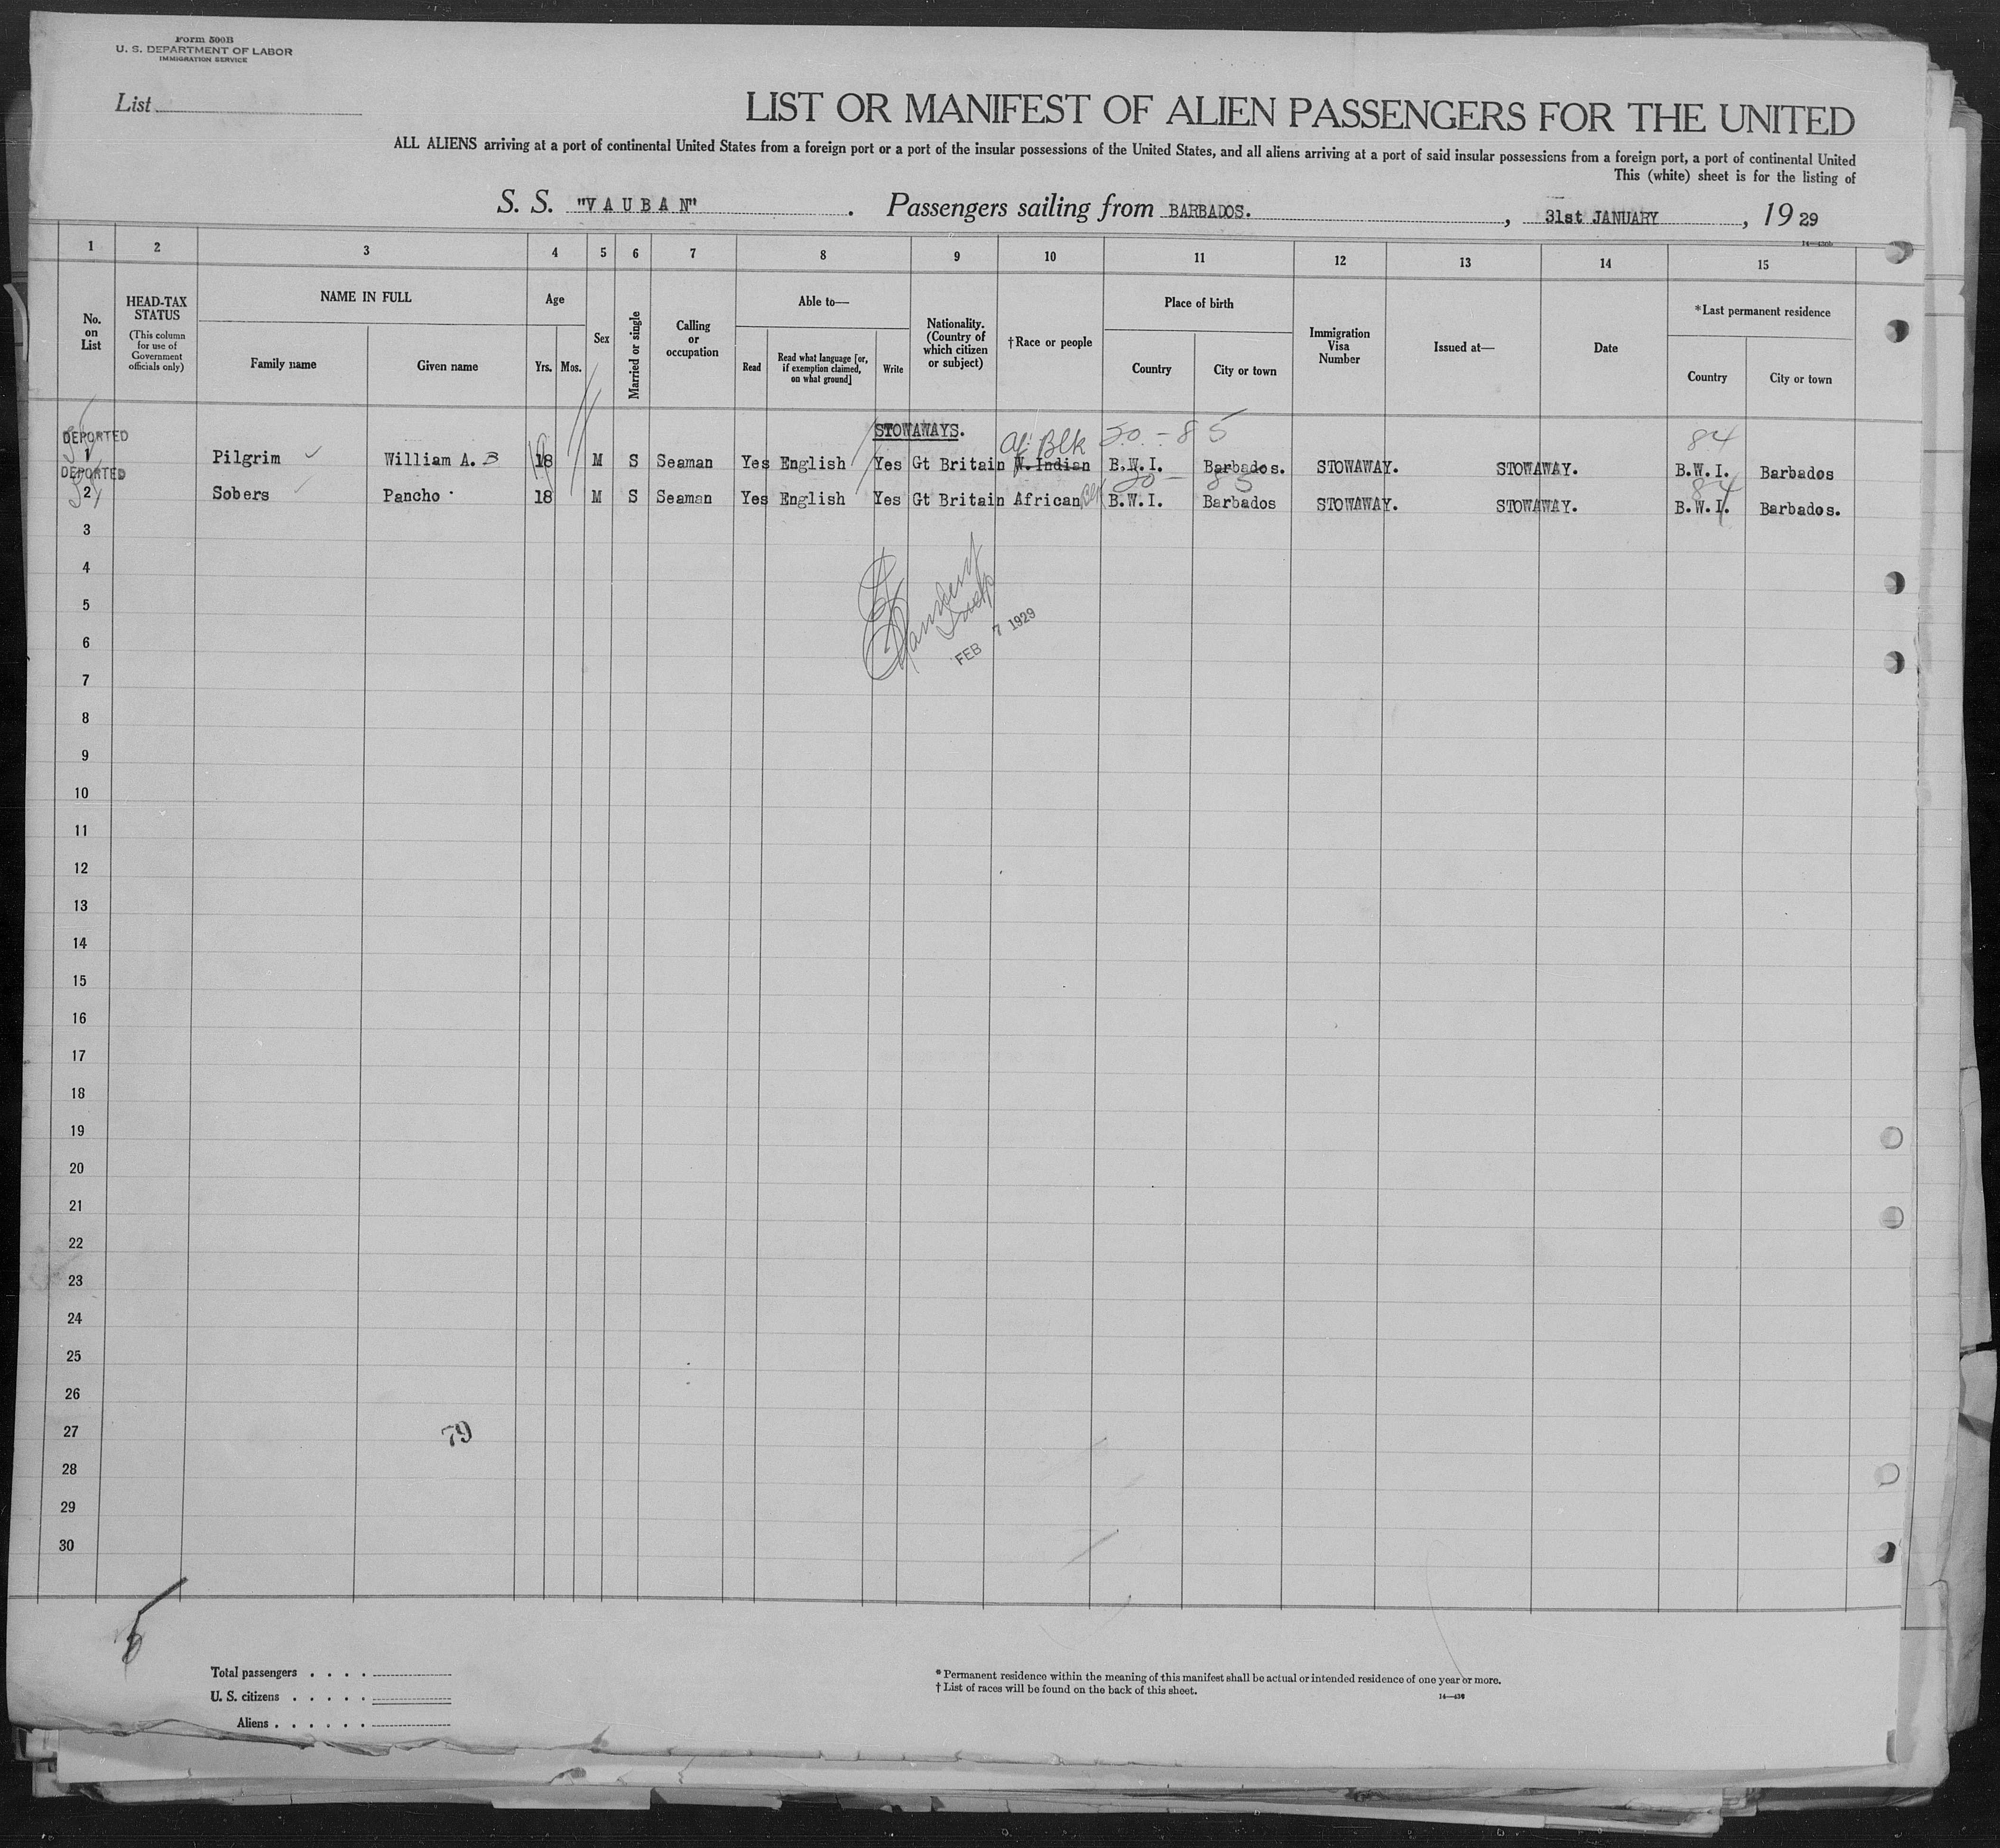 Form 500B
U. S. DEPARTMENT OF LABOR
IMMIGRATION SERVICE
List
LIST OR MANIFEST OF ALIEN PASSENGERS FOR THE UNITED
ALL ALIENS arriving at a port of continental United States from a foreign port or a port of the insular possessions of the United States, and all aliens arriving at a port of said insular possessions from a foreign port, a port of continental United
This (white) sheet is for the listing of
S. S. "VAUBAN". Passengers sailing from BARBADOS., 31st JANUARY, 19 29
1 2 3 4 5 6 7 8 9 10 11 12 13 14 15
No. on List
HEAD-TAX STATUS
(This column for use of Government officials only)
NAME IN FULL
Family name
Given name
Age
Yrs.
Mos.
Sex
Married or single
Calling or occupation
Able to—
Read
Read what language [or, if exemption claimed, on what ground]
Write
Nationality. (Country of which citizen or subject)
†Race or people
Place of birth
Country
City or town
Immigration Visa Number
Issued at—
Date
*Last permanent residence
Country
City or town
STOWAWAYS.
DEPORTED
Af. Blk 50 - 85 84
1 Pilgrim William A. B 18 M S Seaman Yes English Yes Gt Britain W. Indian B.W.I. Barbados. STOWAWAY. STOWAWAY. B.W.I. Barbados
DEPORTED
50 - 85 84
2 Sobers Pancho 18 M S Seaman Yes English Yes Gt Britain African Blk B.W.I. Barbados STOWAWAY. STOWAWAY. B.W.I. Barbados.
3
4
5
6
FEB 7 1929
7
8
9
10
11
12
13
14
15
16
17
18
19
20
21
22
23
24
25
26
27
79
28
29
30
Total passengers
U. S. citizens
Aliens
* Permanent residence within the meaning of this manifest shall be actual or intended residence of one year or more.
† List of races will be found on the back of this sheet.
14—430